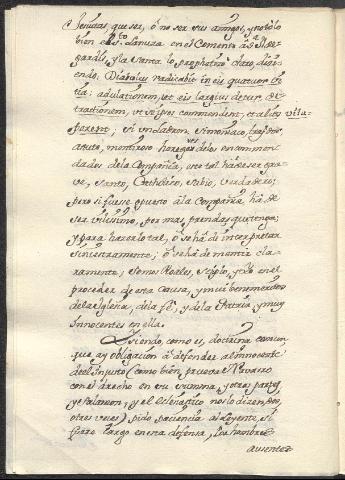 tenidas, que ser, ó no ser sus amigos, y notólo
bien el Sto. Lanuza en el Coment.o à Sta. Ilde
gardis, y la Santa lo prophetizó claro, dici
endo: Diabolus radicabit in eis quatuor vi
tia: adulationem, ut eis largius detur; de
tractionem, ut se ipsos commendent, et alios vitu
perent; si un ladron, simoniaco, traydor,
astuto, mentiroso, herege es de los encommen
dados de la Compañia, este tal ha de ser gra
ve, santo, Catholico, sabio, verdadero;
pero si fuese opuesto à la Compañia ha de
ser vilissimo, por mas prendas que tenga;
y para hacerlo tal, ó se ha de interpretar
siniestramente, ó se ha de mentir cla
ramente; somos Reales, sigilo, y no en el
proceder de esta causa, y mui benemeritos
de la Iglesia, de la fé, y de la Patria y muy
innocentes en ella.
Siendo, como es, doctrina comun,
que ay obligacion à defender al innocente
de el injusto (como bien prueba el Navarro
con el derecho en su summa, y otras partes,
y Salomon, y el Eclesiastico nos lo dizen, dos,
otras veces) pido paciencia al Leyente, si
fuere largo en esta defensa, los hombres
ausentes